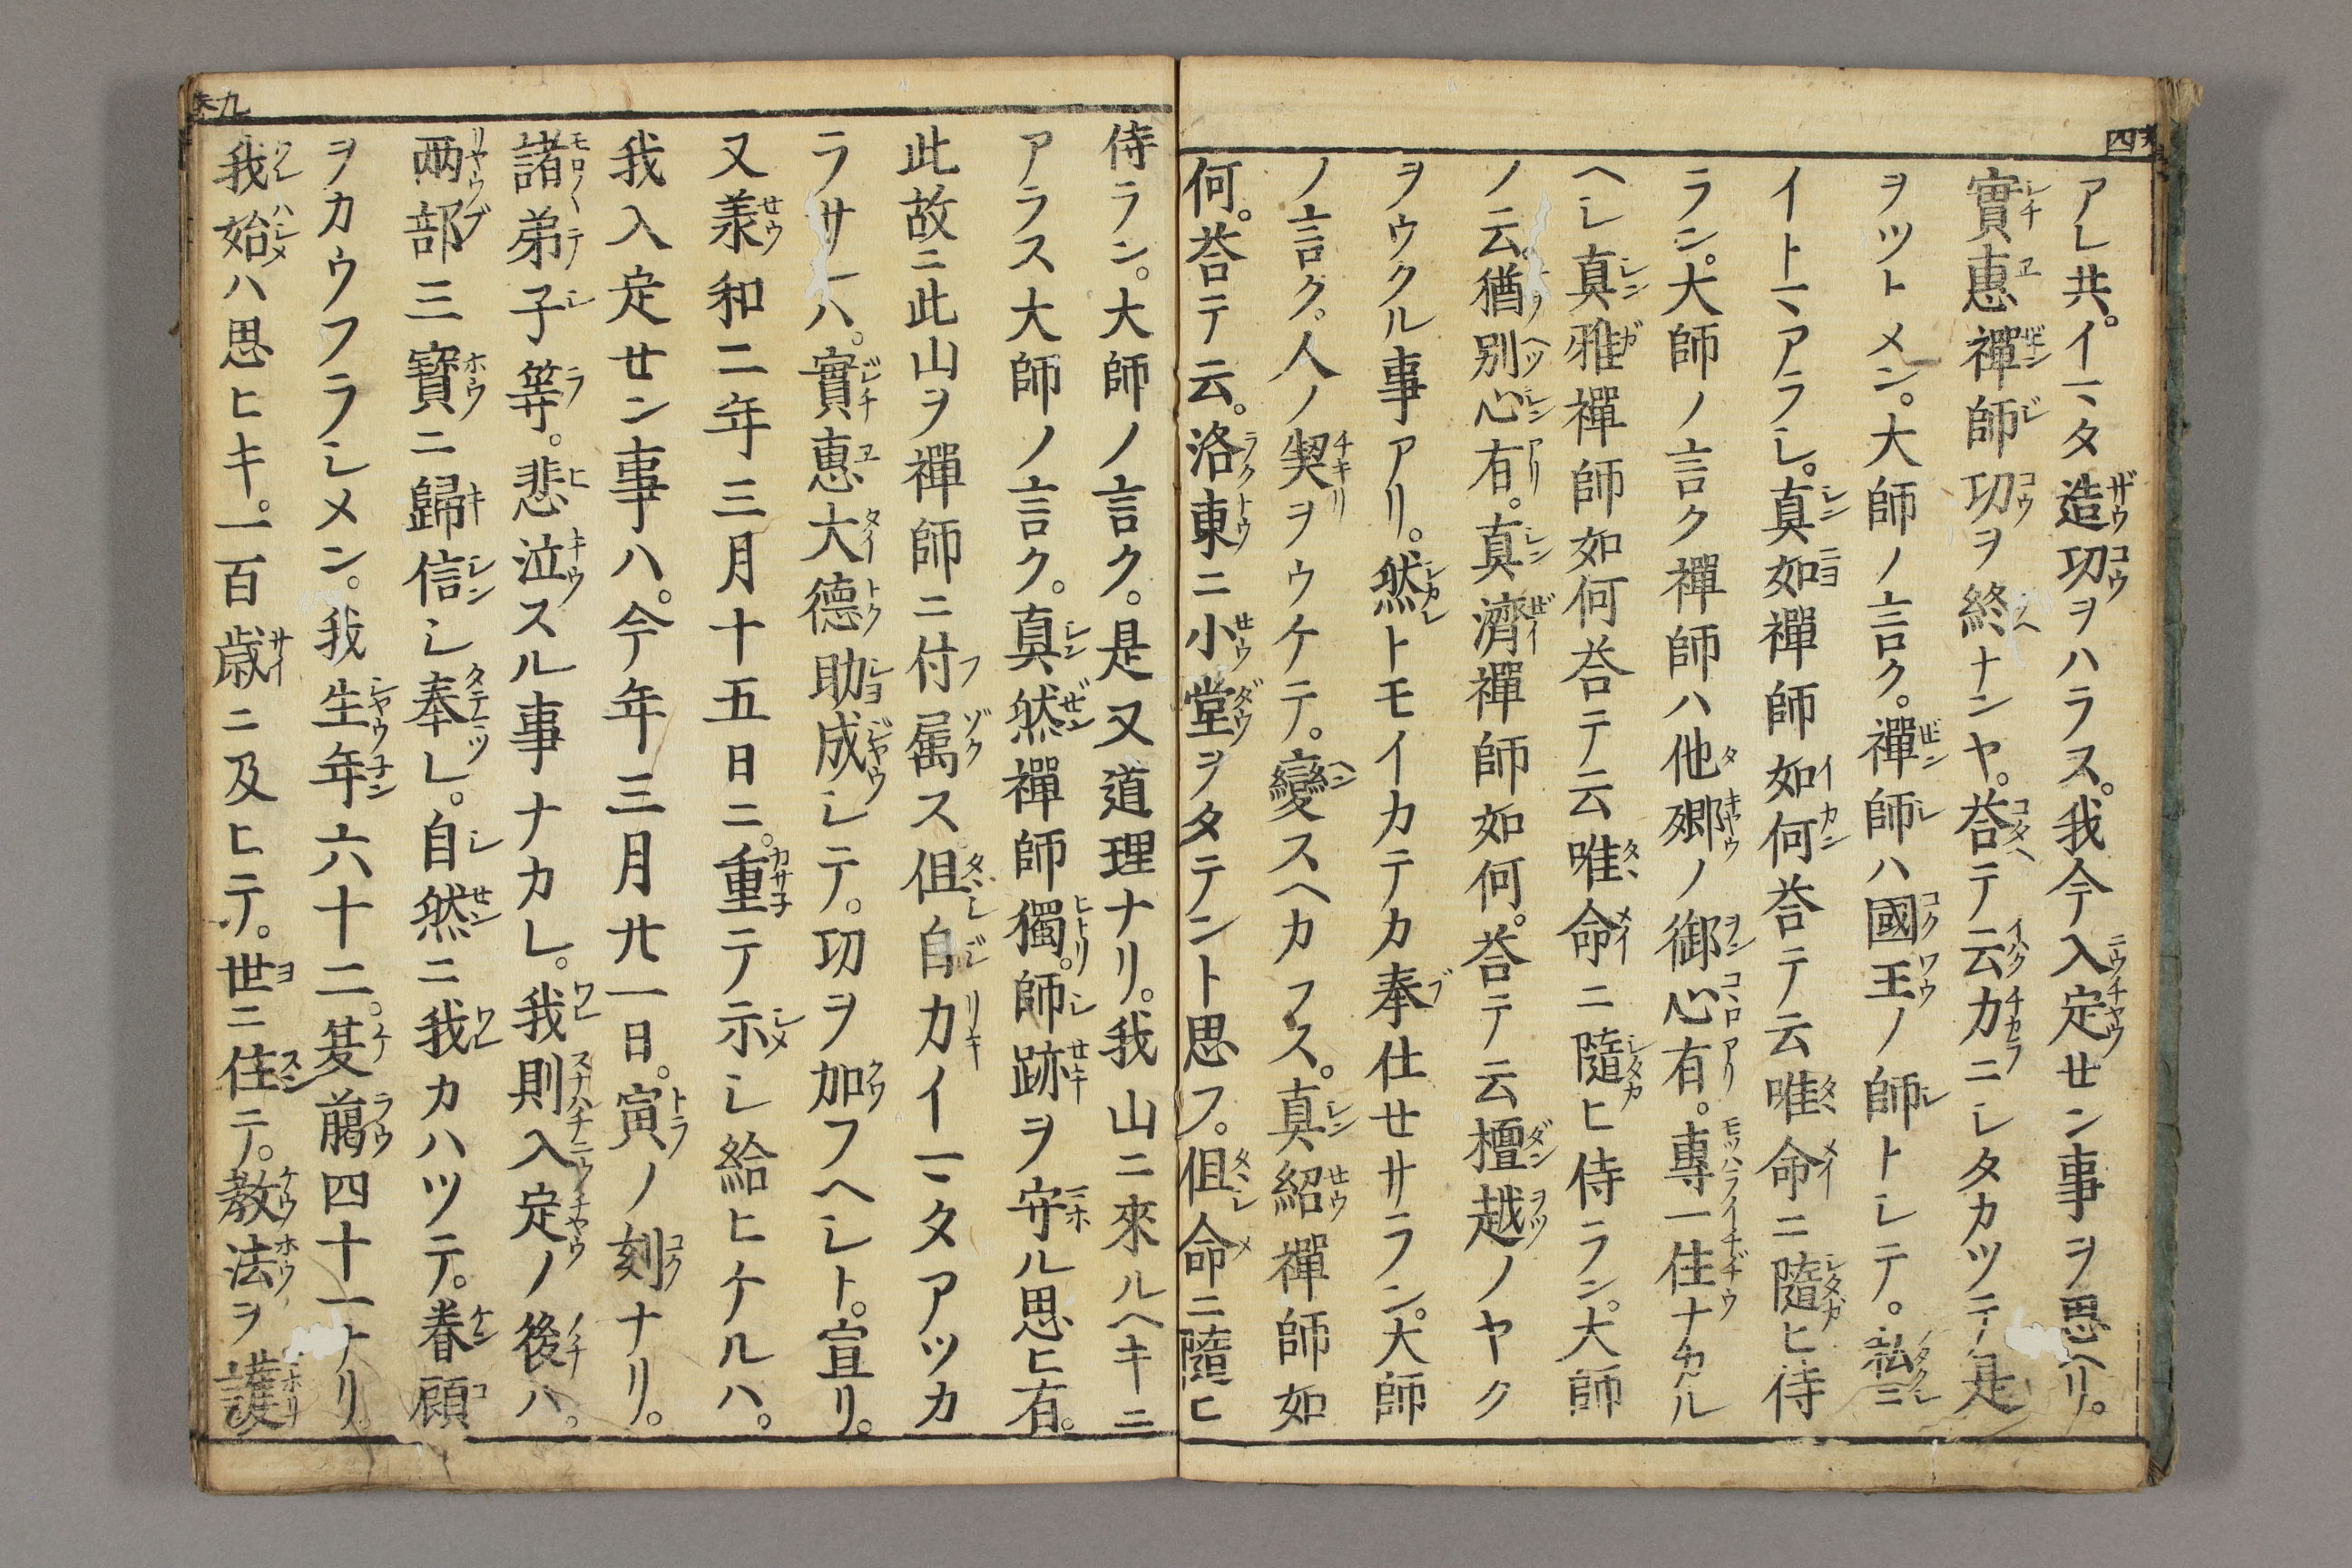 アレ共。イマタ造功ヲハラス。我今入定せン事ヲ思ヘリ。
實惠禪師功ヲ終ナンヤ。荅テ云力ニレタカツテ是
ヲツトメン。大師ノ言ク。禪師ハ國王ノ師トレテ。私ニ
イトマアラレ。真如禪師如何荅テ云唯命ニ隨ヒ侍
ラン。大師ノ言ク禪師ハ他郷ノ御心有。專一住ナカル
ヘし真雅禪師如何荅テ云唯命ニ隨ヒ侍ラン。大師
ノ云。猶別心有。真濟禪師如何。荅テ云檀越ノヤク
ヲウクル事アリ。然トモイカテカ奉仕せサラン。大師
ノ言ク。人ノ契ヲウケテ。變スヘカラス。真紹禪師如
何。荅テ云。洛東ニ小堂ヲタテント思フ。但命ニ隨ヒ
侍ラン。大師ノ言ク。是又道理ナリ。我山ニ來ルヘキニ
アラス大師ノ言ク。真然禪師獨。師跡ヲ守ル思ヒ有。
此故ニ此山ヲ禪師ニ付属ス。但自力イマタアツカ
ラサレハ。實惠大德助成しテ。功ヲ加フヘしト。宣リ。
又羕和二年三月十五日ニ。重テ示し給ヒケルハ。
我入定せン事ハ。今年三月廿一日。寅ノ刻ナリ。
諸弟子等。悲泣スル事ナカレ。我則入定ノ後ハ。
兩部三寶ニ歸信し奉レ。自然ニ我カハツテ。眷顧
ヲカウフラしメン。我生年六十二。夏﨟四十一ナリ
我始ハ思ヒキ。一百歳ニ及ヒテ。世ニ住テ。教法ヲ護